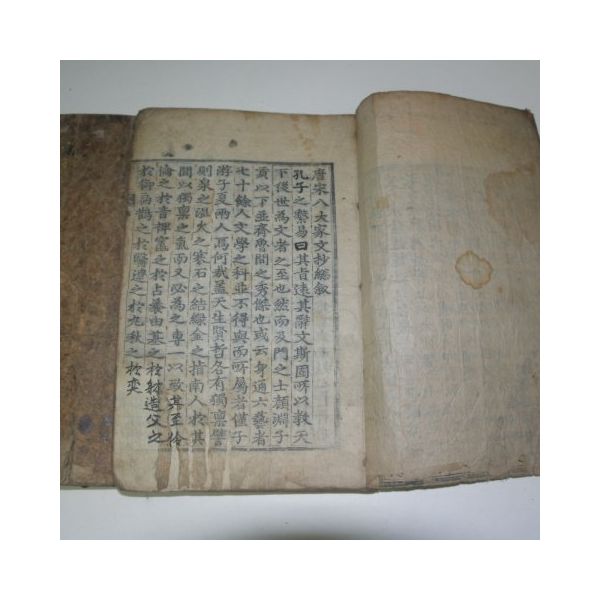 唐宋八大家文抄總叙
孔子之繫易曰其旨遠其辭文斯固所以敎天
下後世爲文者之至也然而及門之士顔淵子
貢以下並齊魯間之秀傑也或云身通六藝者
七十餘人文學之科並不得與而所屬者僅子
游子夏兩人焉何哉盖天生賢哲各有獨稟譬
則泉之溫火之寒石之結綠金之指南人於其
間以獨稟之氣而又必爲之專一以致其至伶
倫之於音裨竈之於占養由基之於射造父之
於御扁鵲之於醫遼之於丸秋之於奕